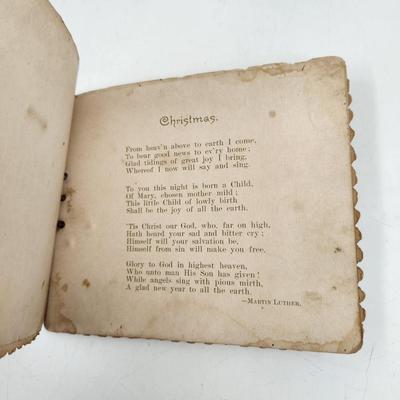 Christmas.
From heav'n above to earth I come,
To bear good news to ev'ry home;
Glad tidings of great joy I bring,
Whereof I now will say and sing.
To you this night is born a Child,
Of Mary, chosen mother mild;
This little Child of lowly birth
Shall be the joy of all the earth.
'Tis Christ our God, who, far on high,
Hath heard your sad and bitter cry;
Himself will your salvation be,
Himself from sin will make you free.
Glory to God in highest heaven,
Who unto man His Son has given!
While angels sing with pious mirth,
A glad new year to all the earth.
—Martin Luther.